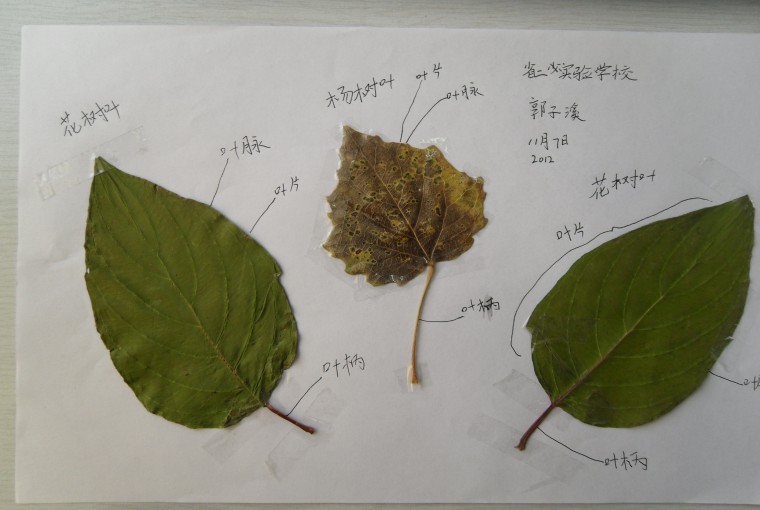 花树叶
叶脉
叶片
叶柄
杨树叶
叶片
叶脉
叶柄
省二实验学校
郭子溪
11月7日
2012
花树叶
叶片
叶柄